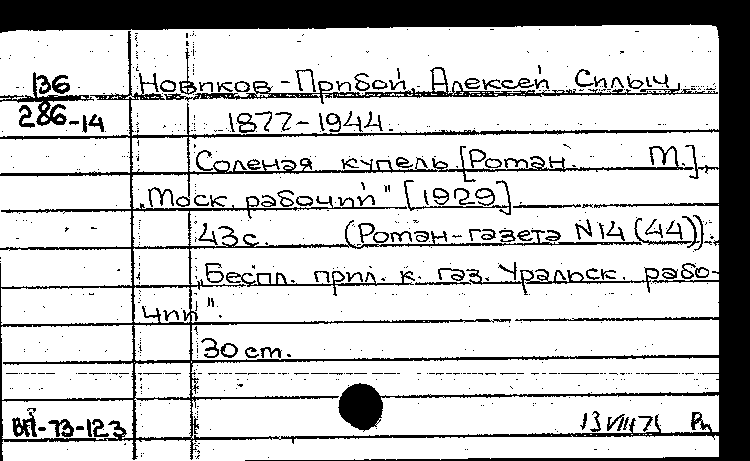 136 Новиков-Прибой, Алексей Силыч,
286-14 1877-1944.
Соленая купель [Роман. М.],
„Моск. рабочий" [1929].
43с. (Роман-газета N14(44)).
„Беспл. прил. к. газ. Уральск. рабо-
чий".
30 cm.
ВП-73-123 13 VIII 75